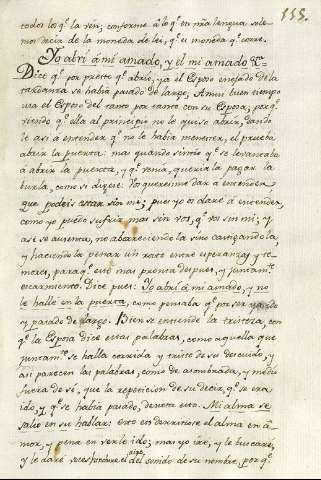 155.
todos los q.e la ven; conforme á lo q.e en nra lengua sole-
mos decir de la moneda de lei, q.e es moneda q.e corre.
Yo abrí á mi amado, y el mi amado &.
Dice q.e por presto q.e abrió, ya el Esposo enojado de la
tardanza se había pasado de largo. A mui buen tiempo
usa el Esposo del tanto por tanto con su Esposa; porq.e
siendo q.e ella al principio no le quiso abrir, dando-
le así á entender q.e no le había menester, el prueba
abrir la puerta: mas quando sintió q.e se levantaba
á abrir la puerta, y q.e venía, quería la pagar la
burla, como si dijese: Vos queréisme dar á entender,
que podeis estar sin mí; pues yo os daré á entender,
como yo puedo sufrir mas sin vos, q.e vos sin mí; y
así se ausenta, no aborreciendola sino castigandola,
y haciendola penar un rato entre esperanzas y te-
mores, para q.e esté mas pronta despues, y juntam.te
escarmiento. Dice pues: Yo abrí á mi amado, y no
le hallé en la puerta, como pensaba q.e por ser
y pasado de largo. Bien se entiende la tristeza, con
q.e la Esposa dice estas palabras, como aquella que
juntam.te se halla corrida y triste de su descuido, y
así parecen las palabras, como de asombrada, y medio
fuera de sí, que la repeticion de su decir q.e se era
ido, y q.e se había pasado, denota esto. Mi alma se
salió en su hablar: esto es derretirse el alma en a-
mor, y pena en verle ido; mas yo iré, y le buscaré,
y le daré voces del sonido de su nombre, porq.e